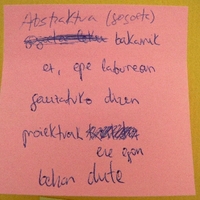 Abstraktua (gasoita)
bakarrik
et, epe laburrean
gauzatuko diren
proiektuak
ere izan
behar dute